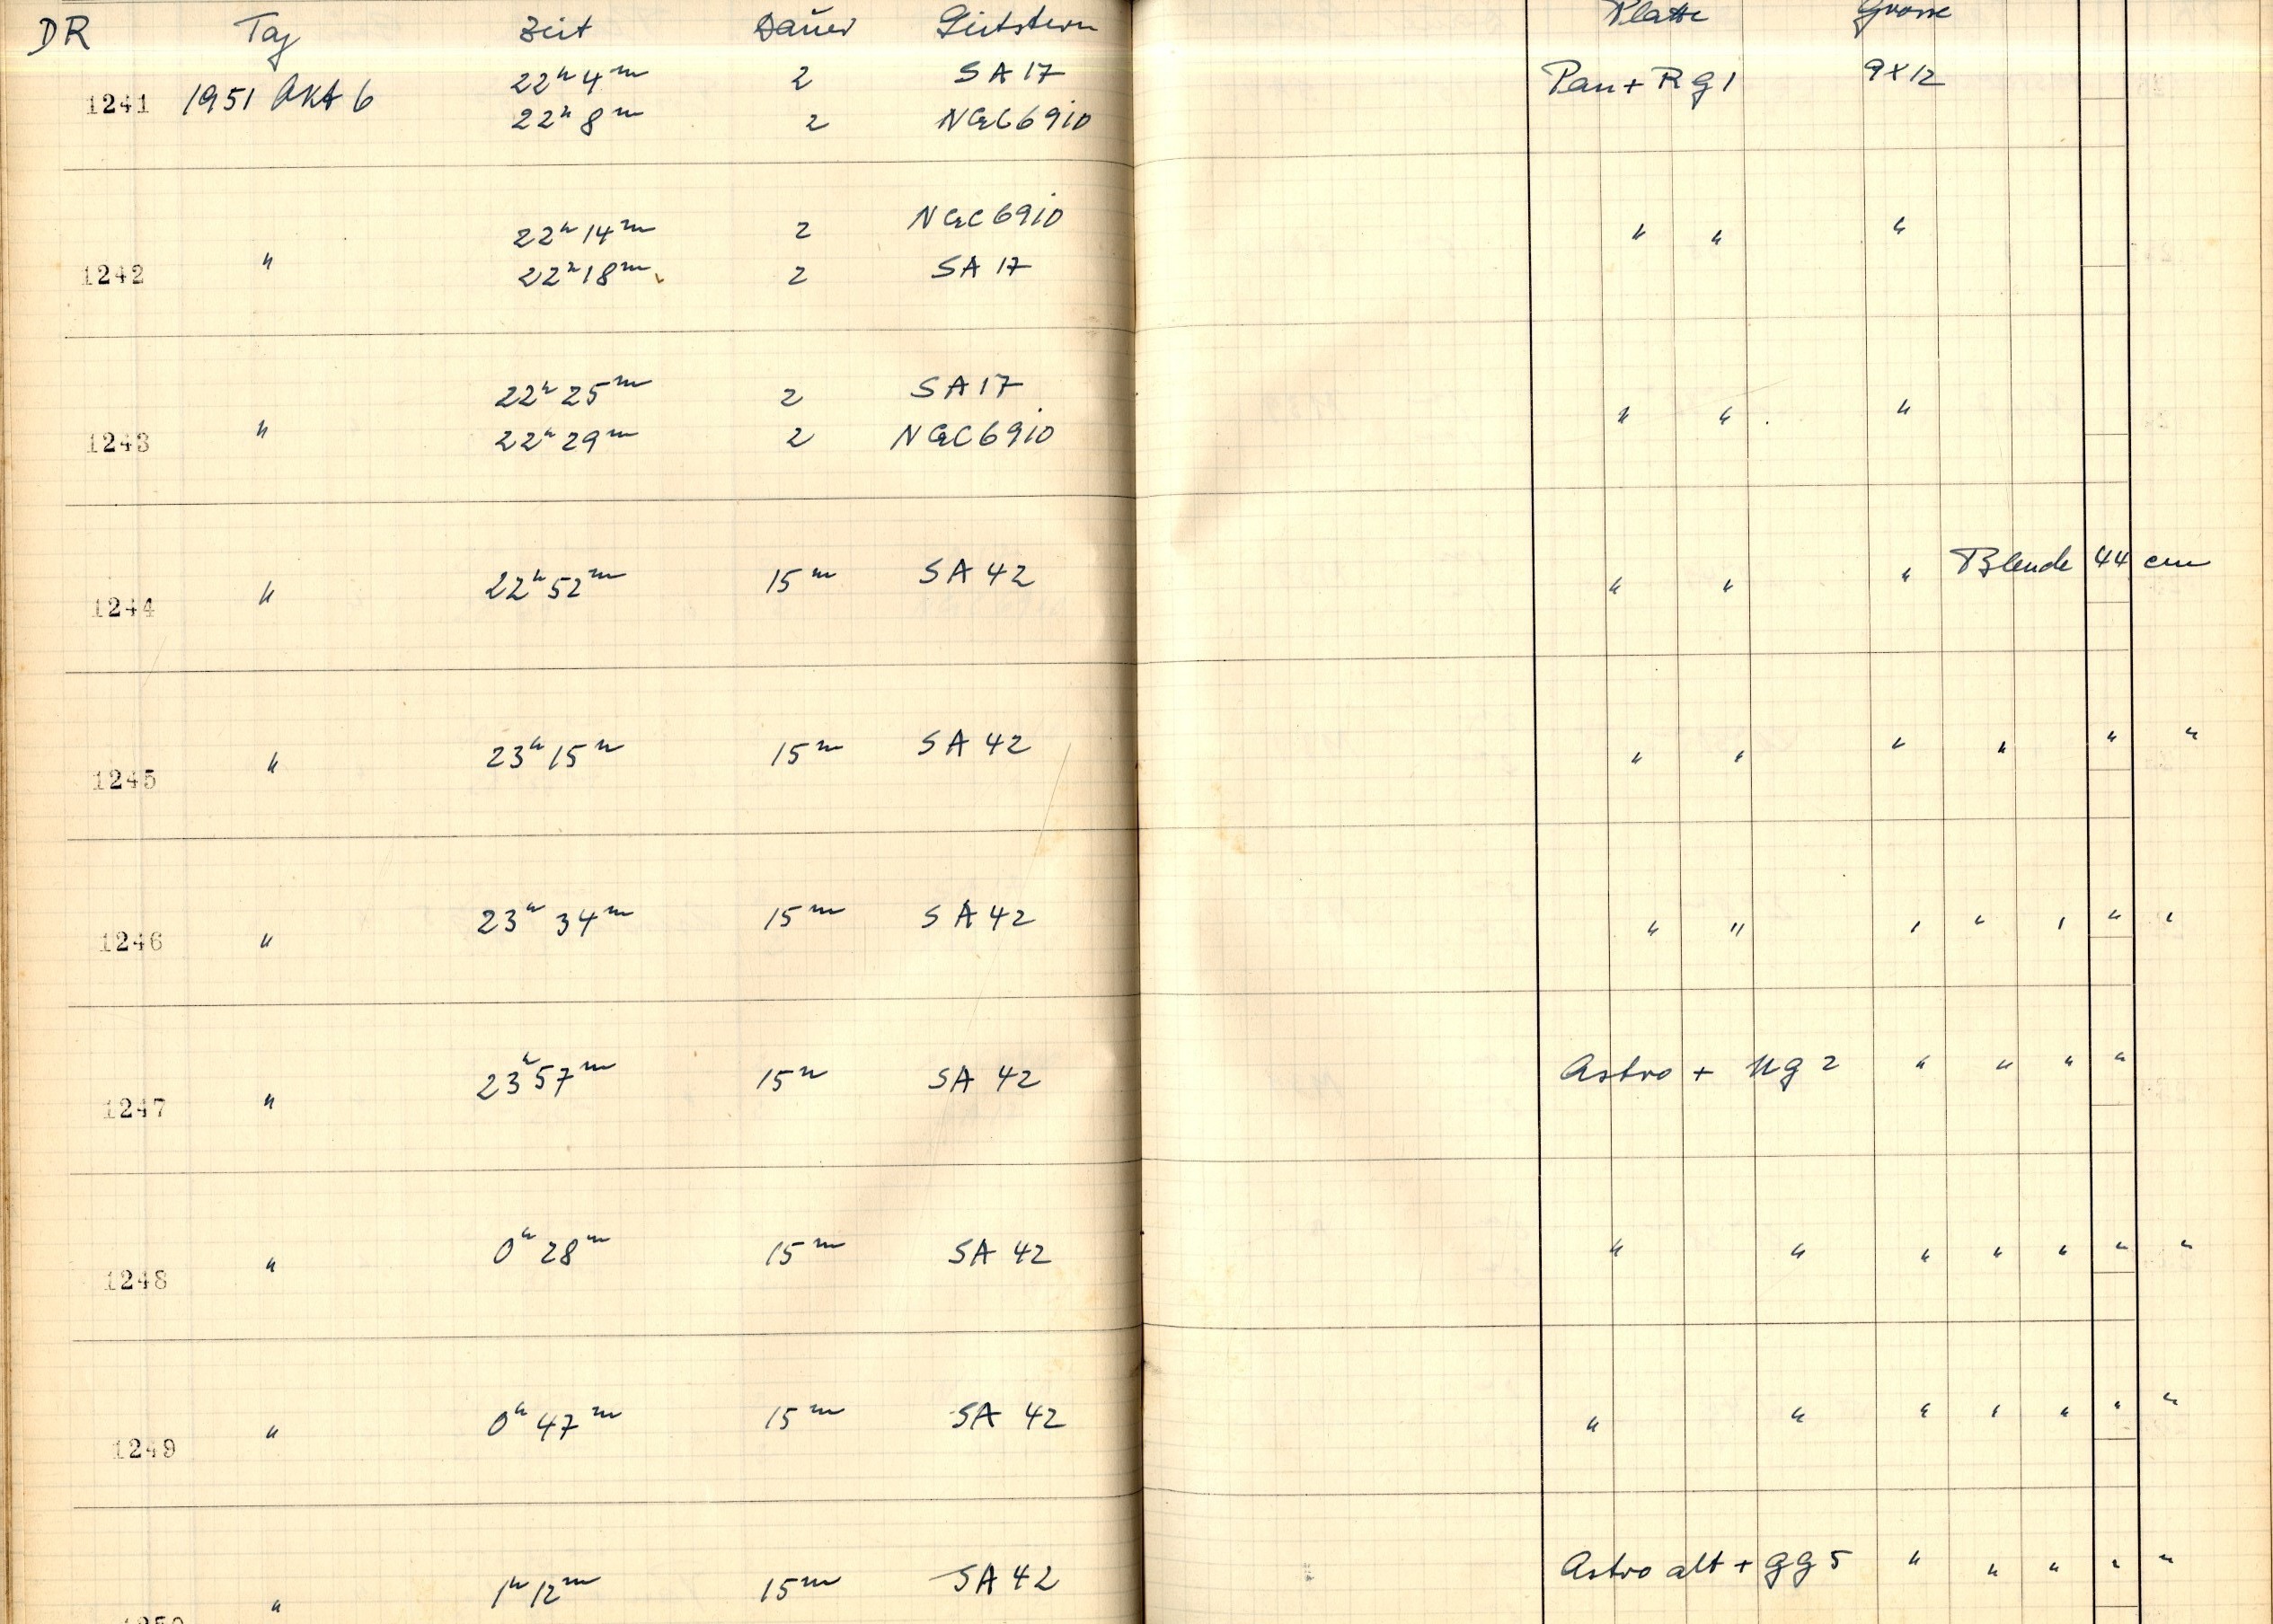 DR Tag Zeit Dauer Leitstern Platte Grösse
1241 1951 Okt 6 22h 4m 2 SA 17 Pan + Rg 1 9x12
22h 8m 2 NGC 6910
22h 14m 2 NGC 6910 " " "
1242 " 22h 18m 2 SA 17
22h 25m 2 SA 17 " " "
1243 " 22h 29m 2 NGC 6910
1244 " 22h 52m 15m SA 42 " " " Blende 44 cm
1245 " 23h 15m 15m SA 42 " " " " " "
1246 " 23h 34m 15m SA 42 " " " " " " "
1247 " 23h 57m 15m SA 42 Astro + Ug 2 " " " "
1248 " 0h 28m 15m SA 42 " " " " " " "
1249 " 0h 47m 15m SA 42 " " " " " " "
1250 " 1h 12m 15m SA 42 Astro alt + gg 5 " " " " "